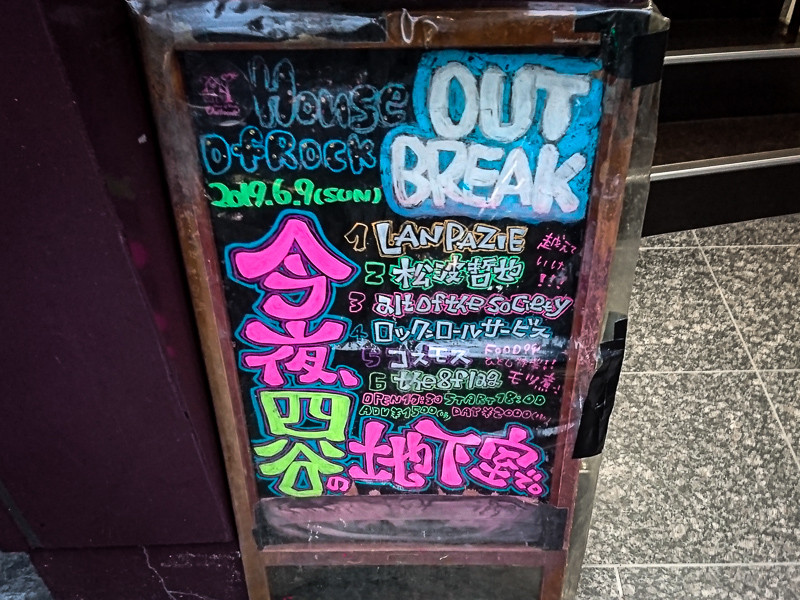 House
OUT
BREAK
Of Rock
2019.6.9(SUN)
1 LANPAZIE
2 松波哲也
3 alt of the society
4 ロックンロールサービス
5 コスモス
6 the8flag
FOOD
モツ煮!!
OPEN 17:30 START 18:00
ADV ¥1500 DAY ¥2000
今夜、四谷の地下室で。